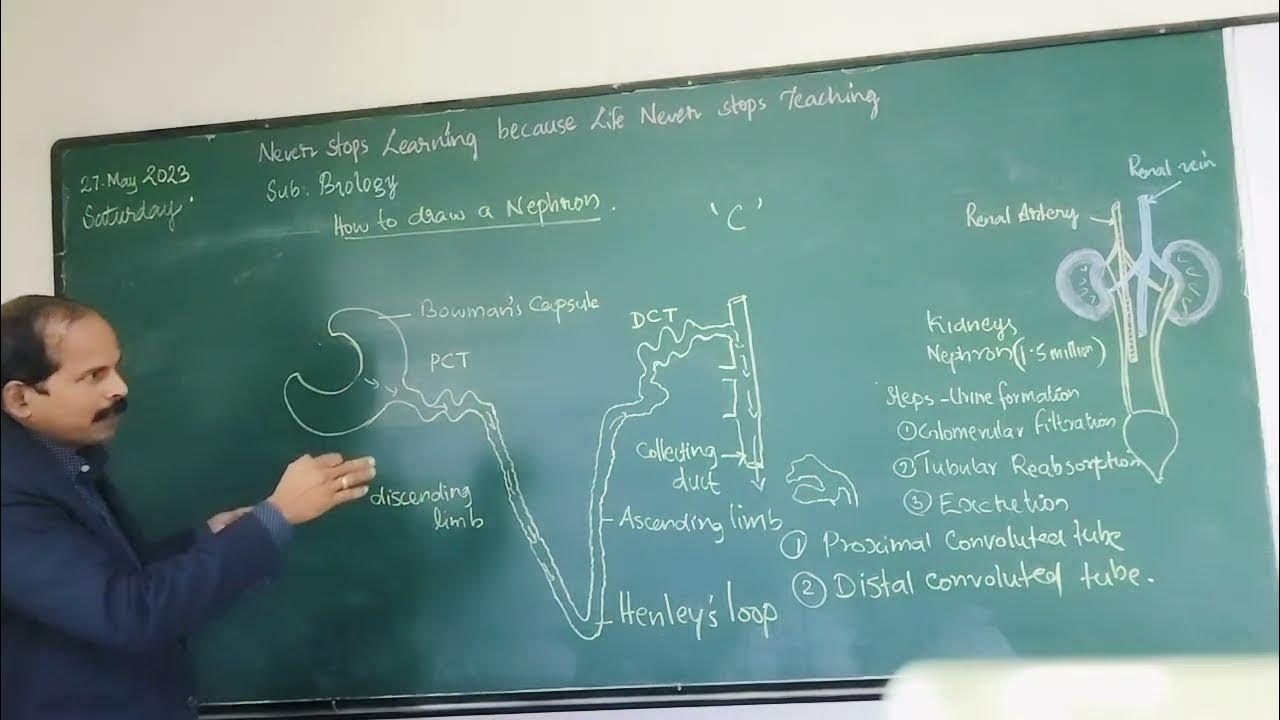 Never stops Learning because Life Never stops Teaching
27. May 2023
Saturday
Sub: Biology
How to draw a Nephron.
'C'
Renal vein
Renal Artery
Bowman's Capsule
PCT
DCT
Kidneys
Nephron (1.5 million)
Steps - Urine formation
① Glomerular filtration
② Tubular Reabsorption
③ Excretion
Collecting
duct
discending
limb
Ascending limb
① Proximal Convoluted tube
② Distal convoluted tube.
Henley's loop